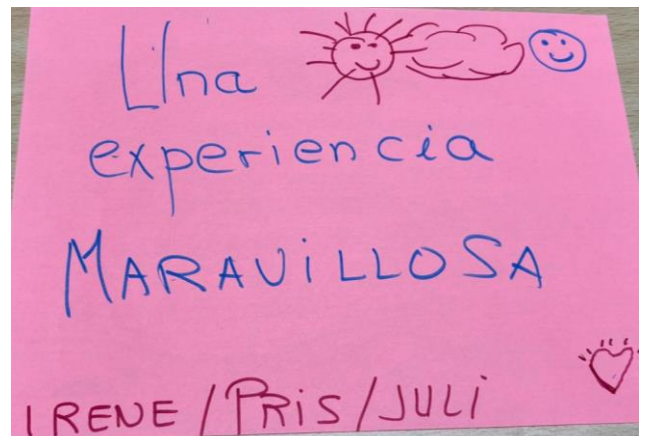 Una
experiencia
MARAViLLOSA
IRENE / PRiS / JULi